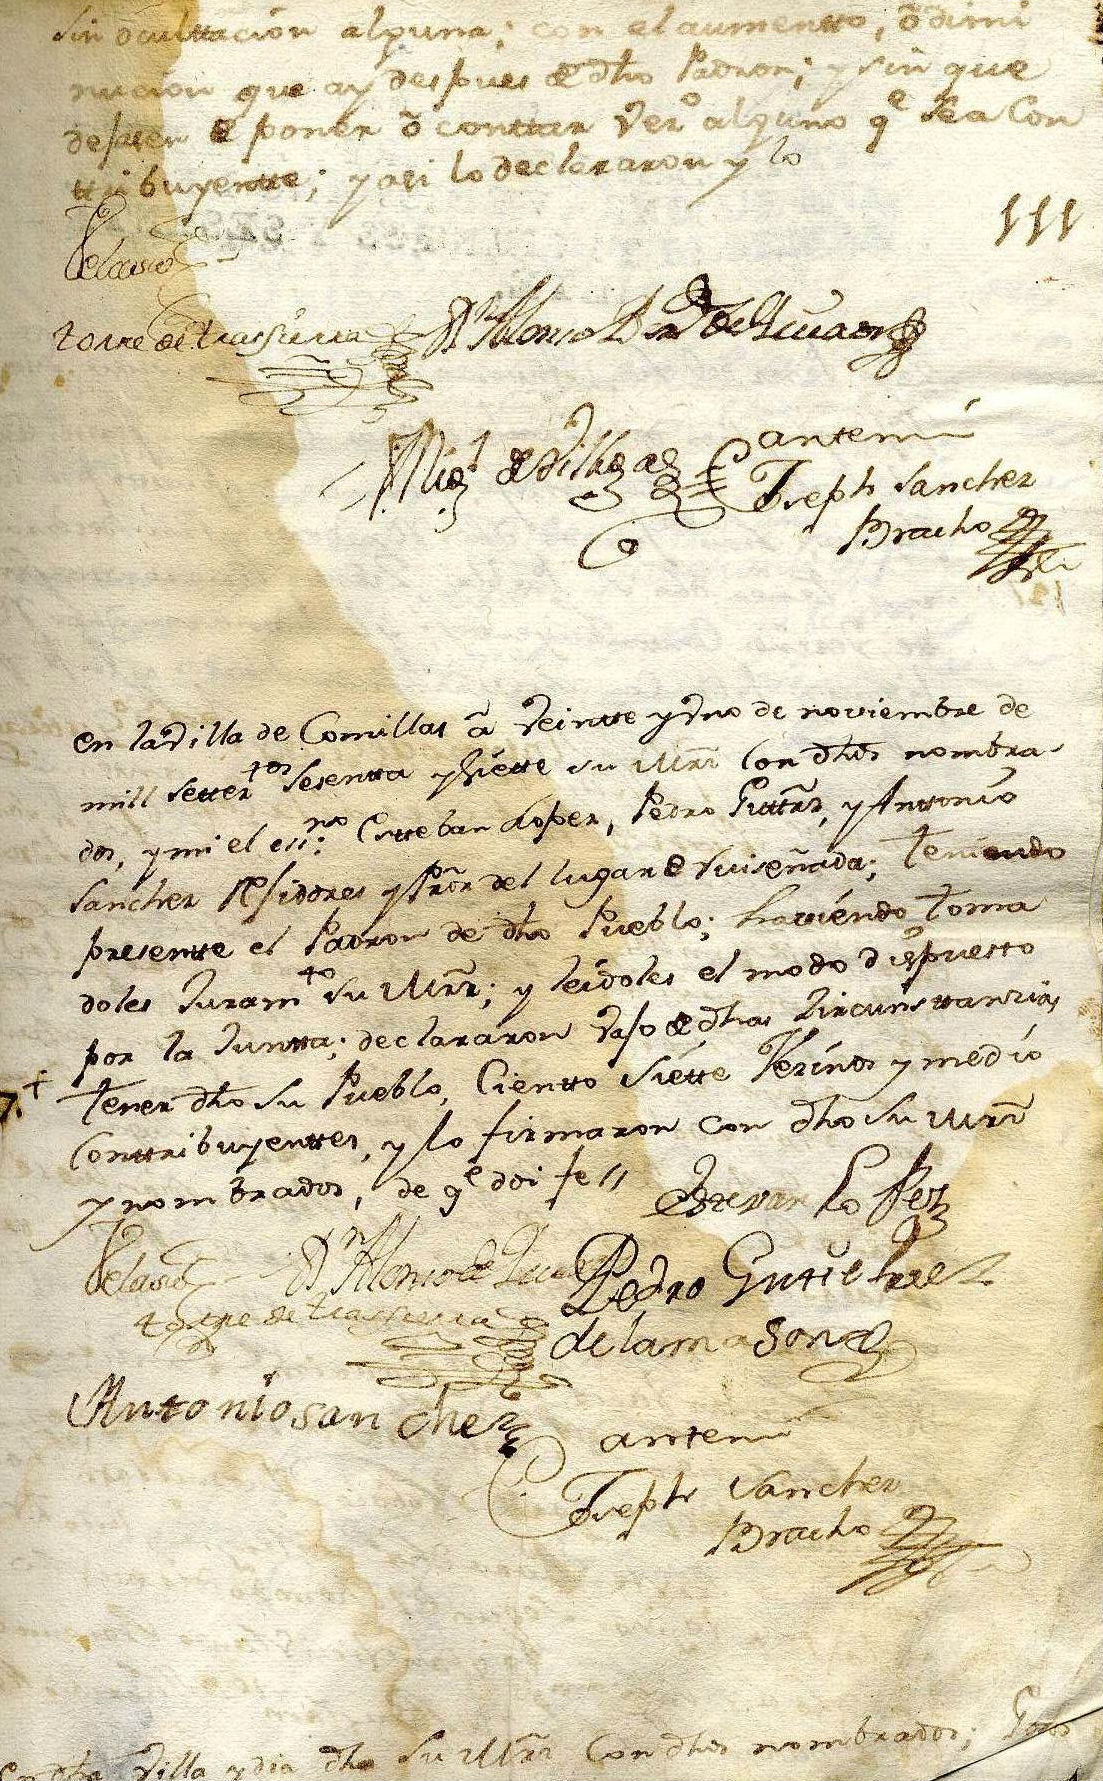 sin ôcultacion alguna; con el aumentto, ô dimi
nucion que ay despues de dho Padron; y sin que
dejasen de poner ô conttar vez.º alguno q.e sea Con
ttribuyentte; y asi lo declararon y lo
111
Velasco
torre de trassierra
Dn Alonso
Mig.l de Villegas
antemi
Joseph Sanchez
Bracho
en la Villa de Comillas â Veintte y Vno de noviembre de
mill setter.tos sesentta y Siette su Mrd Con dhos nombra-
dos, y mi el ess.no Estteban Lopez, Pedro Guttrrz, y Anttonio
Sanchez Rexidores y Prôr del lugar de Ruiseñada; teniendo
presentte el Padron de dho Pueblo; haviendo toma
doles Juram.to su Mrd; y leidoles el modo dispuestto
por la Juntta; declararon vajo de dhas Zircunsttanzias
tener dho su Pueblo, Cientto Siette Vezinos y medio
Conttribuyenttes, y lo firmaron con dho su Mrd
y nombrados, de q.e doi fe //
Estevan Lopez
Velasco
Dn Alonso de
Pedro Gutierrez
torre de trassierra
de la mason
Antonio sanchez
antemi
Joseph Sanchez
Bracho
En dha Villa y dia dho Su Mrd Con dhos nombrados;